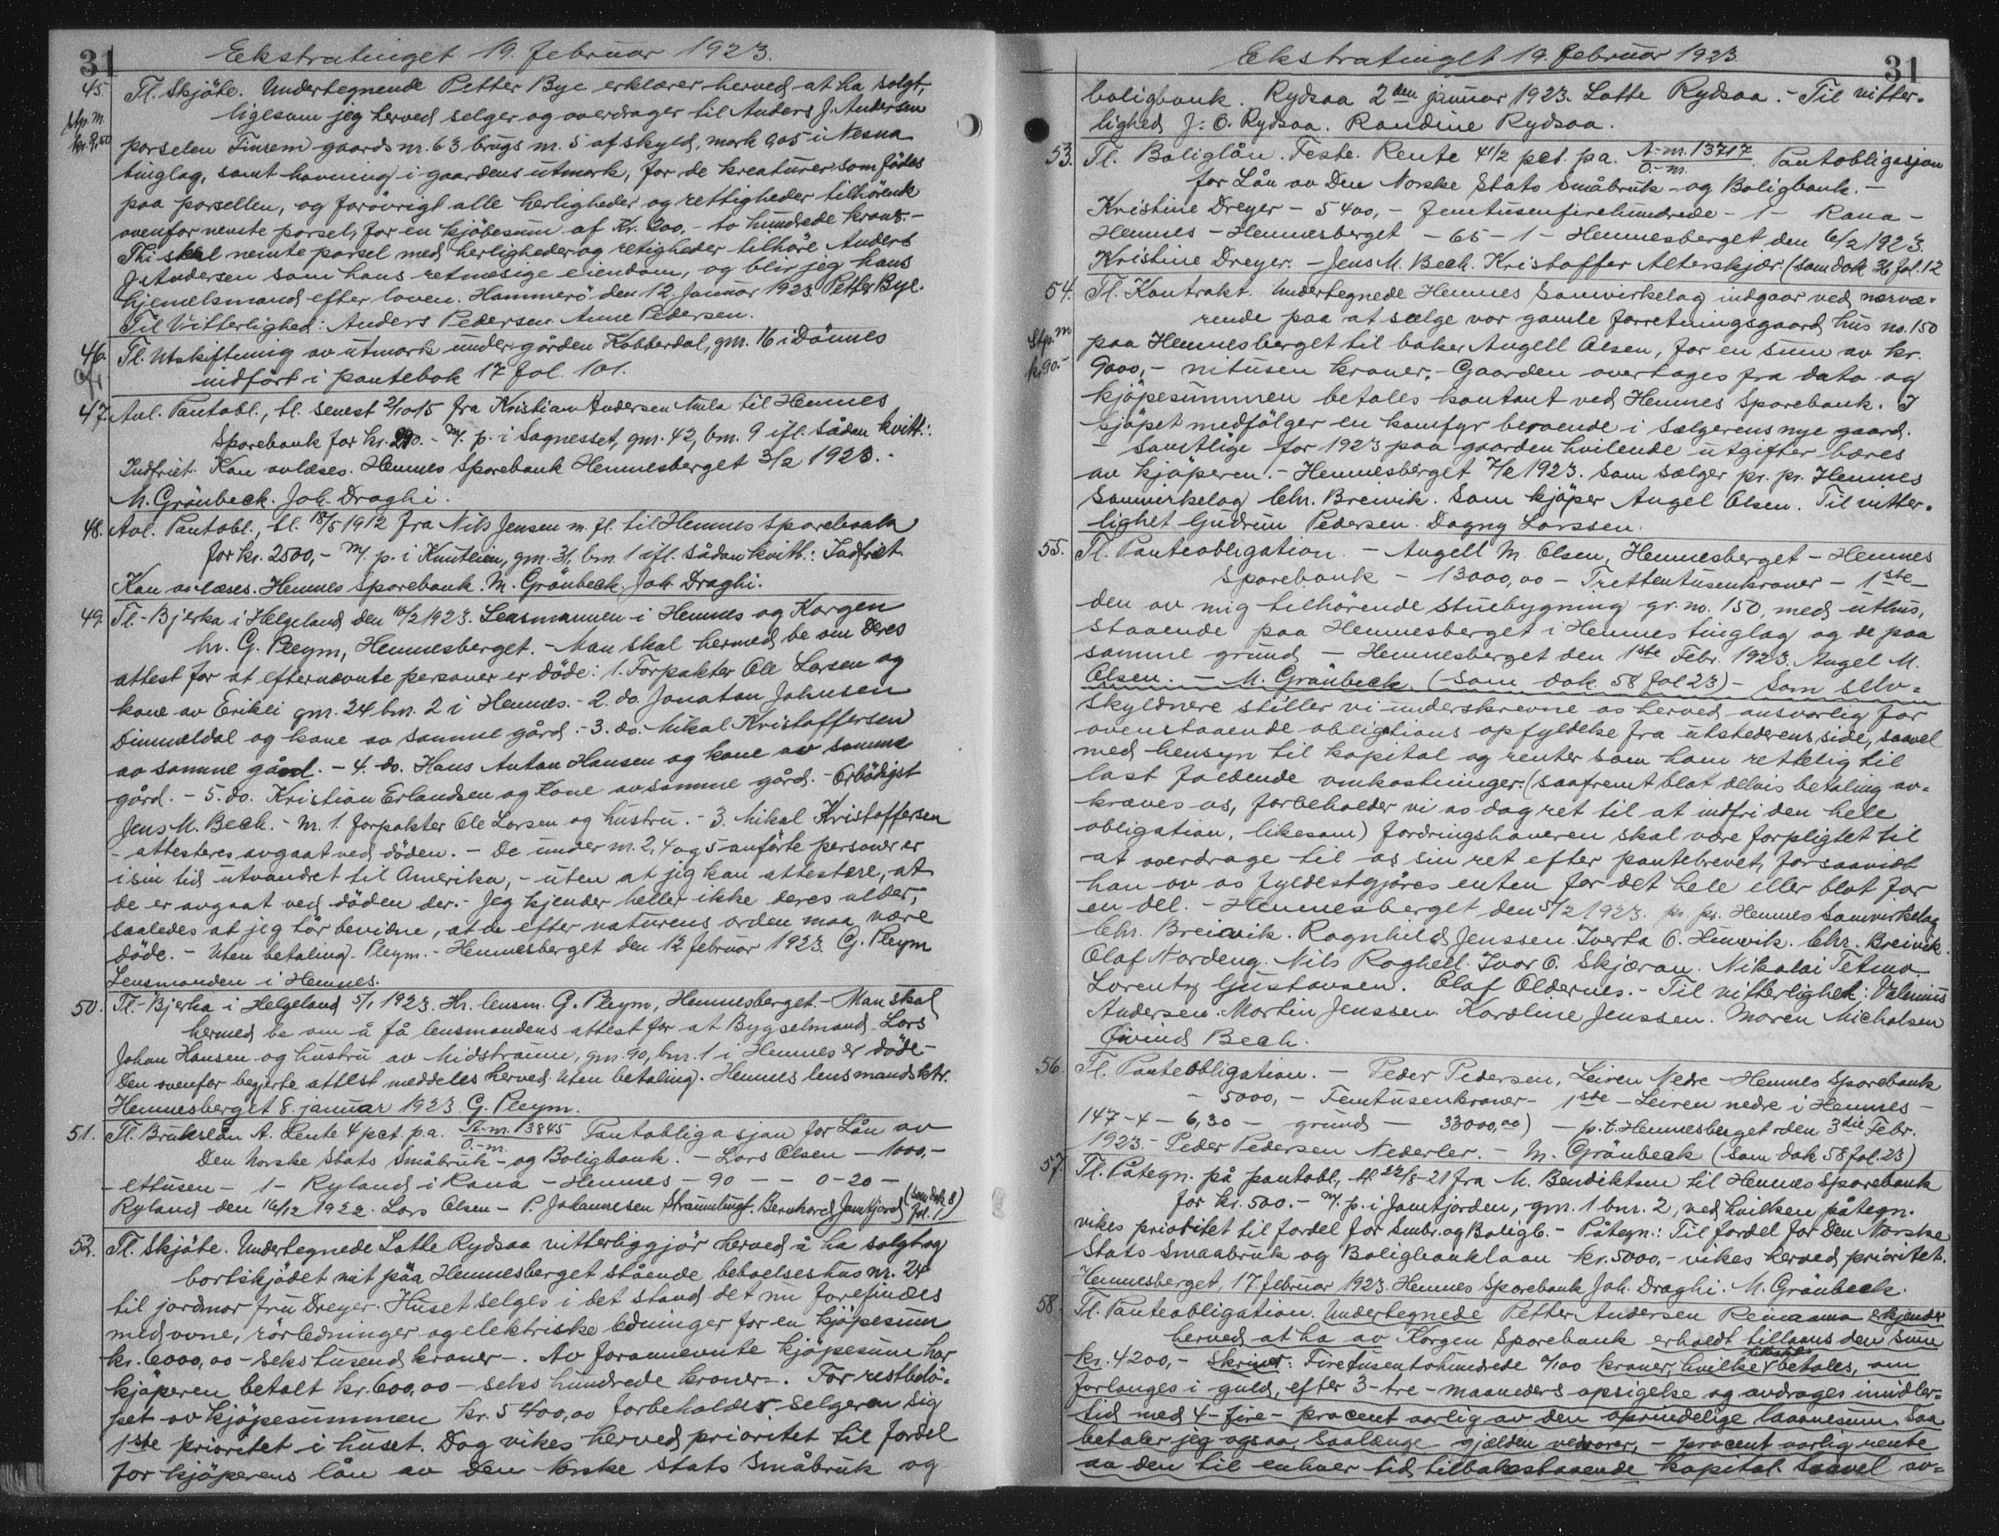 31
Ekstratinget 19. februar 1923.
45. Tl. Skjöte. Undertegnede Petter Bye erklærer herved at ha solgt,
ligesom jeg herved selger og overdrager til Anders J. Andersen
Stp. m. kr. 9,50
parselen Finsem gaards nr. 63 brugs nr. 5 af skyld, mark 9,05 i Nesna
tinglag, samt havning i gaardens utmark, for de kreaturer som födes
paa parsellen, og forövrigt alle herligheder og rettigheder tilhörende
ovenfor nevnte parsel, for en kjöbesum af Kr. 200,- to hundrede kroner.-
Thi skal nevnte parsel med herligheder og retigheder tilhöre Anders
J. Andersen som hans retmæsige eiendom, og blir jeg hans
hjemelsmand efter loven. Hammerö den 12 Januar 1923. Petter Bye.
Til Vitterlighed: Anders Pedersen. Anne Pedersen.
46. Tl. Utskiftning av utmark under gården Kobberdal, gnr. 16 i Dönnes
indfört i pantebok 17 fol. 101.
47. Avl. Pantobl., tl. senest 2/10 15 fra Kristian Andersen Mula til Hemnes
Sparebank for kr. 290.- m/ p. i Sagnesset, gnr. 42, bnr. 9 ifl. sådan kvitt.:
Indfriet. Kan avlæses. Hemnes Sparebank Hemnesberget 3/2 1923.-
M. Grönbeck. Joh. Draghi.
48. Avl. Pantobl., tl. 18/5 1912 fra Nils Jensen m. fl. til Hemnes Sparebank
for kr. 2500,- m/ p. i Knutlien, gnr. 31, bnr. 1 ifl. sådan kvitt.: Indfriet.
Kan avlæses. Hemnes Sparebank. M. Grönbeck. Joh. Draghi.
49. Tl.- Bjerka i Helgeland den 10/2 1923. Lensmannen i Hemnes og Korgen
hr. G. Pleym, Hemnesberget.- Man skal hermed be om Deres
attest for at efternævnte personer er döde: 1. Forpakter Ole Larsen og
kone av Erikli gnr. 24 bnr. 2 i Hemnes.- 2. do. Jonatan Johnsen
Dinnældal og kone av samme gård.- 3. do. Mikal Kristoffersen
av samme gård.- 4. do. Hans Antan Hansen og kone av samme
gård.- 5. do. Kristian Erlandsen og Kone av samme gård.- Erbödigst
Jens M. Bech.- Nr. 1. Forpakter Ole Larsen og hustru.- 3. Mikal Kristoffersen
- attesteres avgaat ved döden.- De under nr. 2, 4 og 5 anförte personer er
i sin tid utvandret til Amerika,- uten at jeg kan attestere, at
de er avgaat ved döden der.- Jeg kjender heller ikke deres alder,
saaledes at jeg tör bevidne, at de efter naturens orden maa være
döde.- Uten betaling. Pleym.- Hemnesberget den 12 februar 1923 G. Pleym
Lensmanden i Hemnes.
50. Tl.- Bjerka i Helgeland 5/1 1923. Hr. lensm. G. Pleym, Hemnesberget.- Man skal
hermed be om å få lensmandens attest for at Bygselmand Lars
Johan Hansen og hustru av Midstraum, gnr. 90, bnr. 1 i Hemnes er döde.-
Den ovenfor begjerte attest meddeles herved Uten betaling). Hemnes lensmandsktr.
Hemnesberget 8. januar 1923. G. Pleym.
51. Tl. Brukslån A. Rente 4 pct. p.a. A.-nr. 13845 / O.-nr. Pantobligasjon for Lån av
Den Norske Stats Småbruk- og Boligbank.- Lars Olsen - 1000,-
- ettusen - 1 - Ryland i Rana - Hemnes - 90 - - 0-20 -
Ryland den 16/12 1922. Lars Olsen - P. Johannesen Straumbugt. Bernhard Jamtjord (som dok 8 fol. 1)
52. Tl. Skjöte. Undertegnede Lotte Rydsaa vitterliggjör herved å ha solgt og
bortskjödet mit påa Hemnesberget stående beboelseshus nr. 24
til jordmor fru Dreyer. Huset selges i det stand det nu forefindes
med ovne, rörledninger og elektriske ledninger for en kjöpesum
kr. 6000,00 - sekstusend kroner -. Av forannevnte kjöpesum har
kjöperen betalt kr. 600,00 - seks hundrede kroner -. For restbelö-
pet av kjöpesummen kr. 5400,00 forbeholder selgeren sig
1ste prioritet i huset. Dog vikes herved prioritet til fordel
for kjöperens lån av Den Norske Stats Småbruk og
31
Ekstratinget 19. februar 1923
boligbank. Rydsaa 2den januar 1923. Lotte Rydsaa.- Til vitter-
lighed J. O. Rydsaa. Randine Rydsaa.
53. Tl. Boliglån. Feste. Rente 4 1/2 pct. pa. A.-nr. 13717 / O.-nr. Pantobligasjon
for Lån av Den Norske Stats Småbruk- og Boligbank.-
Kristine Dreyer - 5400,- Femtusenfirehundrede - 1 - Rana -
Hemnes - Hemnesberget - 65 - 1 - Hemnesberget den 6/2 1923.
Kristine Dreyer.- Jens M. Bech. Kristoffer Alterskjær. (som dok 36 fol. 12
54. Tl. Kontrakt. Undertegnede Hemnes Samvirkelag indgaar ved nærvæ-
rende paa at sælge vor gamle forretningsgaard hus no. 150
Stp. m kr. 90.-
paa Hemnesberget til baker Angell Olsen, for en sum av kr.
9000,- nitusen kroner.- Gaarden overtages fra dato og
kjöpesummen betales kontant ved Hemnes Sparebank. I
kjöpet medfölger en komfyr beroende i sælgerens nye gaard.
- Samtlige for 1923 paa gaarden hvilende utgifter bæres
av kjöperen.- Hemnesberget 7/2 1923. Som sælger pr. pr. Hemnes
Samvirkelag Chr. Breivik. Som kjöper Angel Olsen. Til vitter-
lighet Gudrun Pedersen. Dagny Larssen.
55. Tl. Panteobligation.- Angell M. Olsen, Hemnesberget - Hemnes
Sparebank - 13000,00 - Trettentusenkroner - 1ste -
den av mig tilhörende stuebygning gr. no. 150 med uthus,
staaende paa Hemnesberget i Hemnes tinglag og de paa
samme grund - Hemnesberget den 1ste Febr. 1923. Angel M.
Olsen.- M. Grönbeck. (Som dok. 58 fol 23) - Som selv-
skyldnere stiller vi underskrevne os herved ansvarlig for
ovenstaaende obligations opfyldelse fra utstederens side, saavel
med hensyn til kapital og renter som ham rettelig til
last faldende omkostninger. (saafremt blot delvis betaling av-
kræves os, forbeholder vi os dog ret til at indfri den hele
obligation, likesom) fordringshaveren skal være forpligtet til
at overdrage til os sin ret efter pantebrevet, forsaavidt
han av os fyldestgjöres enten for det hele eller blot for
en del.- Hemnesberget den 5/2 1923. pr. pr. Hemnes Samvirkelag
Chr. Breivik. Ragnhild Jenssen. Iverta O. Hauvik. Chr. Breivik.
Olaf Nordeng. Nils Roghell. Ivar O. Skjæran. Nikolai Tetmo.
Lorentz Gustavsen. Olaf Oldernes.- Til vitterlighet: Valennis
Andersen. Martin Jenssen. Karoline Jenssen. Maren Nicholsen
Eivind Bech.
56. Tl. Panteobligation.- Peder Pedersen, Leiren Nedre - Hemnes Sparebank
- 5000,- Femtusenkroner - 1ste - Leiren nedre i Hemnes -
147-4-6,30 - grund - 33000,00) - p. t. Hemnesberget den 3die Febr.
1923.- Peder Pedersen Nederler.- M. Grönbeck (som dok 58 fol. 23)
57. Tl. Påtegn. på pantobl., tl. 22/8-21 fra M. Bendiktsen til Hemnes Sparebank
for kr. 500.- m/. p. i Jamtjorden, gnr. 1 bnr. 2, ved hvilken påtegn.
vikes prioritet til fordel for Smbr. og Boligb.- Påtegn.: Til fordel for Den Norske
Stats Smaabruk og Boligbanklaan kr. 5000,- vikes herved prioritet.
Hemnesberget, 17. februar 1923. Hemnes Sparebank Joh. Draghi. M. Grönbeck.
58. Tl. Panteobligation. Undertegnede Petter Andersen Reinaamo erkjender
herved at ha av Korgen Sparebank erholdt tillaans den sum
kr. 4200,- Skriver: Firetusentohundrede 0/00 kroner, hvilke tilbake betales, om
forlanges i guld, efter 3-tre-maaneders opsigelse og avdrages imidler-
tid med 4-fire- procent aarlig av den oprindelige laanesum. Saa
betaler jeg ogsaa, saalænge gjælden vedvarer, - procent aarlig rente
av den til enhver tid tilbakestaaende kapital. Saavel av-